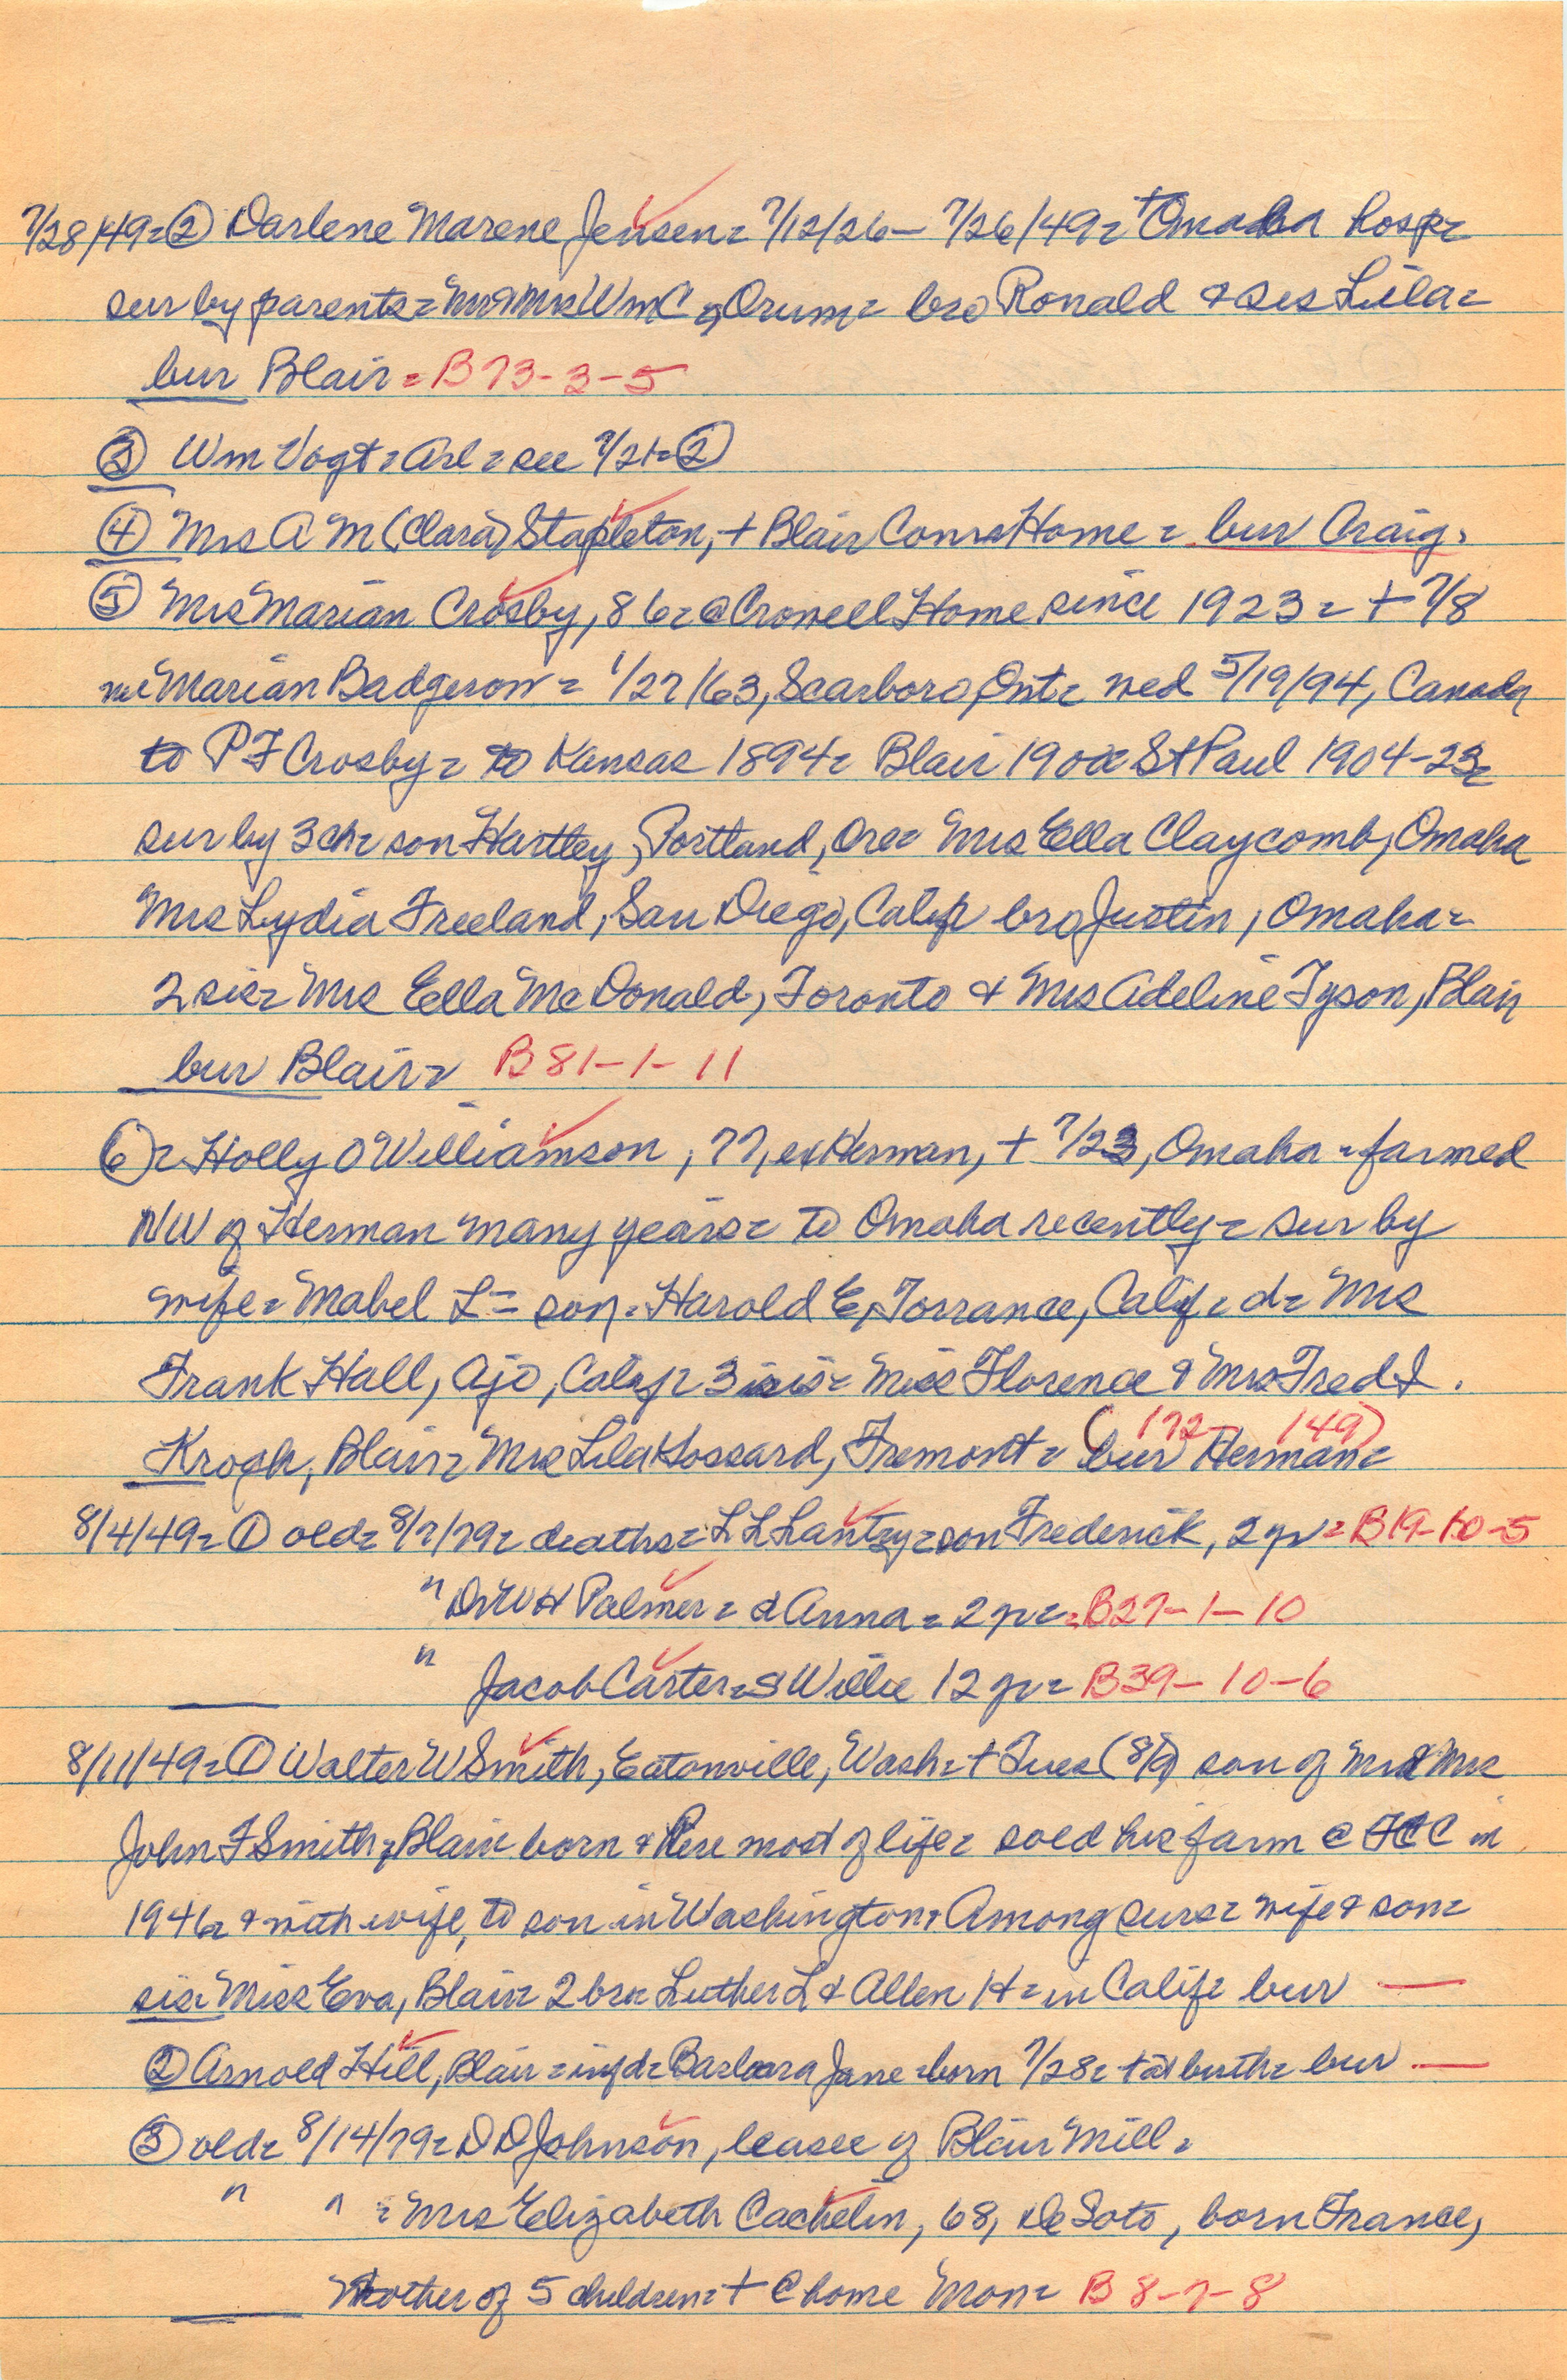 7/28/49=② Darlene Marene Jensen= 7/12/26- 7/26/49= + Omaha hosp=
sur by parents= Mr & Mrs Wm C of Orum= bro Ronald & sis Lila=
bur Blair = B73-3-5
③ Wm Vogt= Arl= see 7/21=②
④ Mrs A M (Clara) Stapleton, + Blair Conv Home = bur Craig.
⑤ Mrs Marian Crosby, 86= @ Crowell Home since 1923= + 7/8
Marian Badgerow = 1/27/63, Scarboro, Ont= wed 5/19/94, Canada
to P F Crosby= to Kansas 1894= Blair 190 St Paul 1904-23=
sur by 3 ch= son Hartley, Portland, Ore= Mrs Ella Claycomb, Omaha
Mrs Lydia Freeland, San Diego, Calif= bro Justin, Omaha=
2 sis= Mrs Ella McDonald, Toronto & Mrs Adeline Tyson, Blair
bur Blair= B81-1-11
⑥= Holly O Williamson, 77, ex Herman, + 7/23, Omaha = farmed
NW of Herman many years= to Omaha recently= sur by
wife= Mabel L= son= Harold E, Torrance, Calif= d= Mrs
Frank Hall, Ajo, Calif= 3 sis= Miss Florence & Mrs Fred I.
Krogh, Blair= Mrs Lila Hossard, Fremont= bur Herman= (172- 149)
8/4/49=① old= 8/7/79= deaths= L L Lantry= son Frederick, 2 yr= B19-10-5
" Dr W H Palmer= d Anna= 2 yr= B27-1-10
" Jacob Carter= s Willie 12 yr= B39-10-6
8/11/49=① Walter W Smith, Eatonville, Wash= + Tues (8/9) son of Mr & Mrs
John F Smith, Blair= born & here most of life= sold his farm @ FCC in
1946= & with wife, to son in Washington. Among surs= wife & son=
sis= Miss Eva, Blair= 2 bro= Luther L & Allen H= in Calif= bur —
② Arnold Hill, Blair= inf d= Barbara Jane= born 7/28= + at birth= bur —
③ old= 8/14/79= D D Johnson, leasee of Blair Mill=
" " = Mrs Elizabeth Cachelin, 68, DeSoto, born France,
Mother of 5 children= + @ home Mon= B 8-7-8